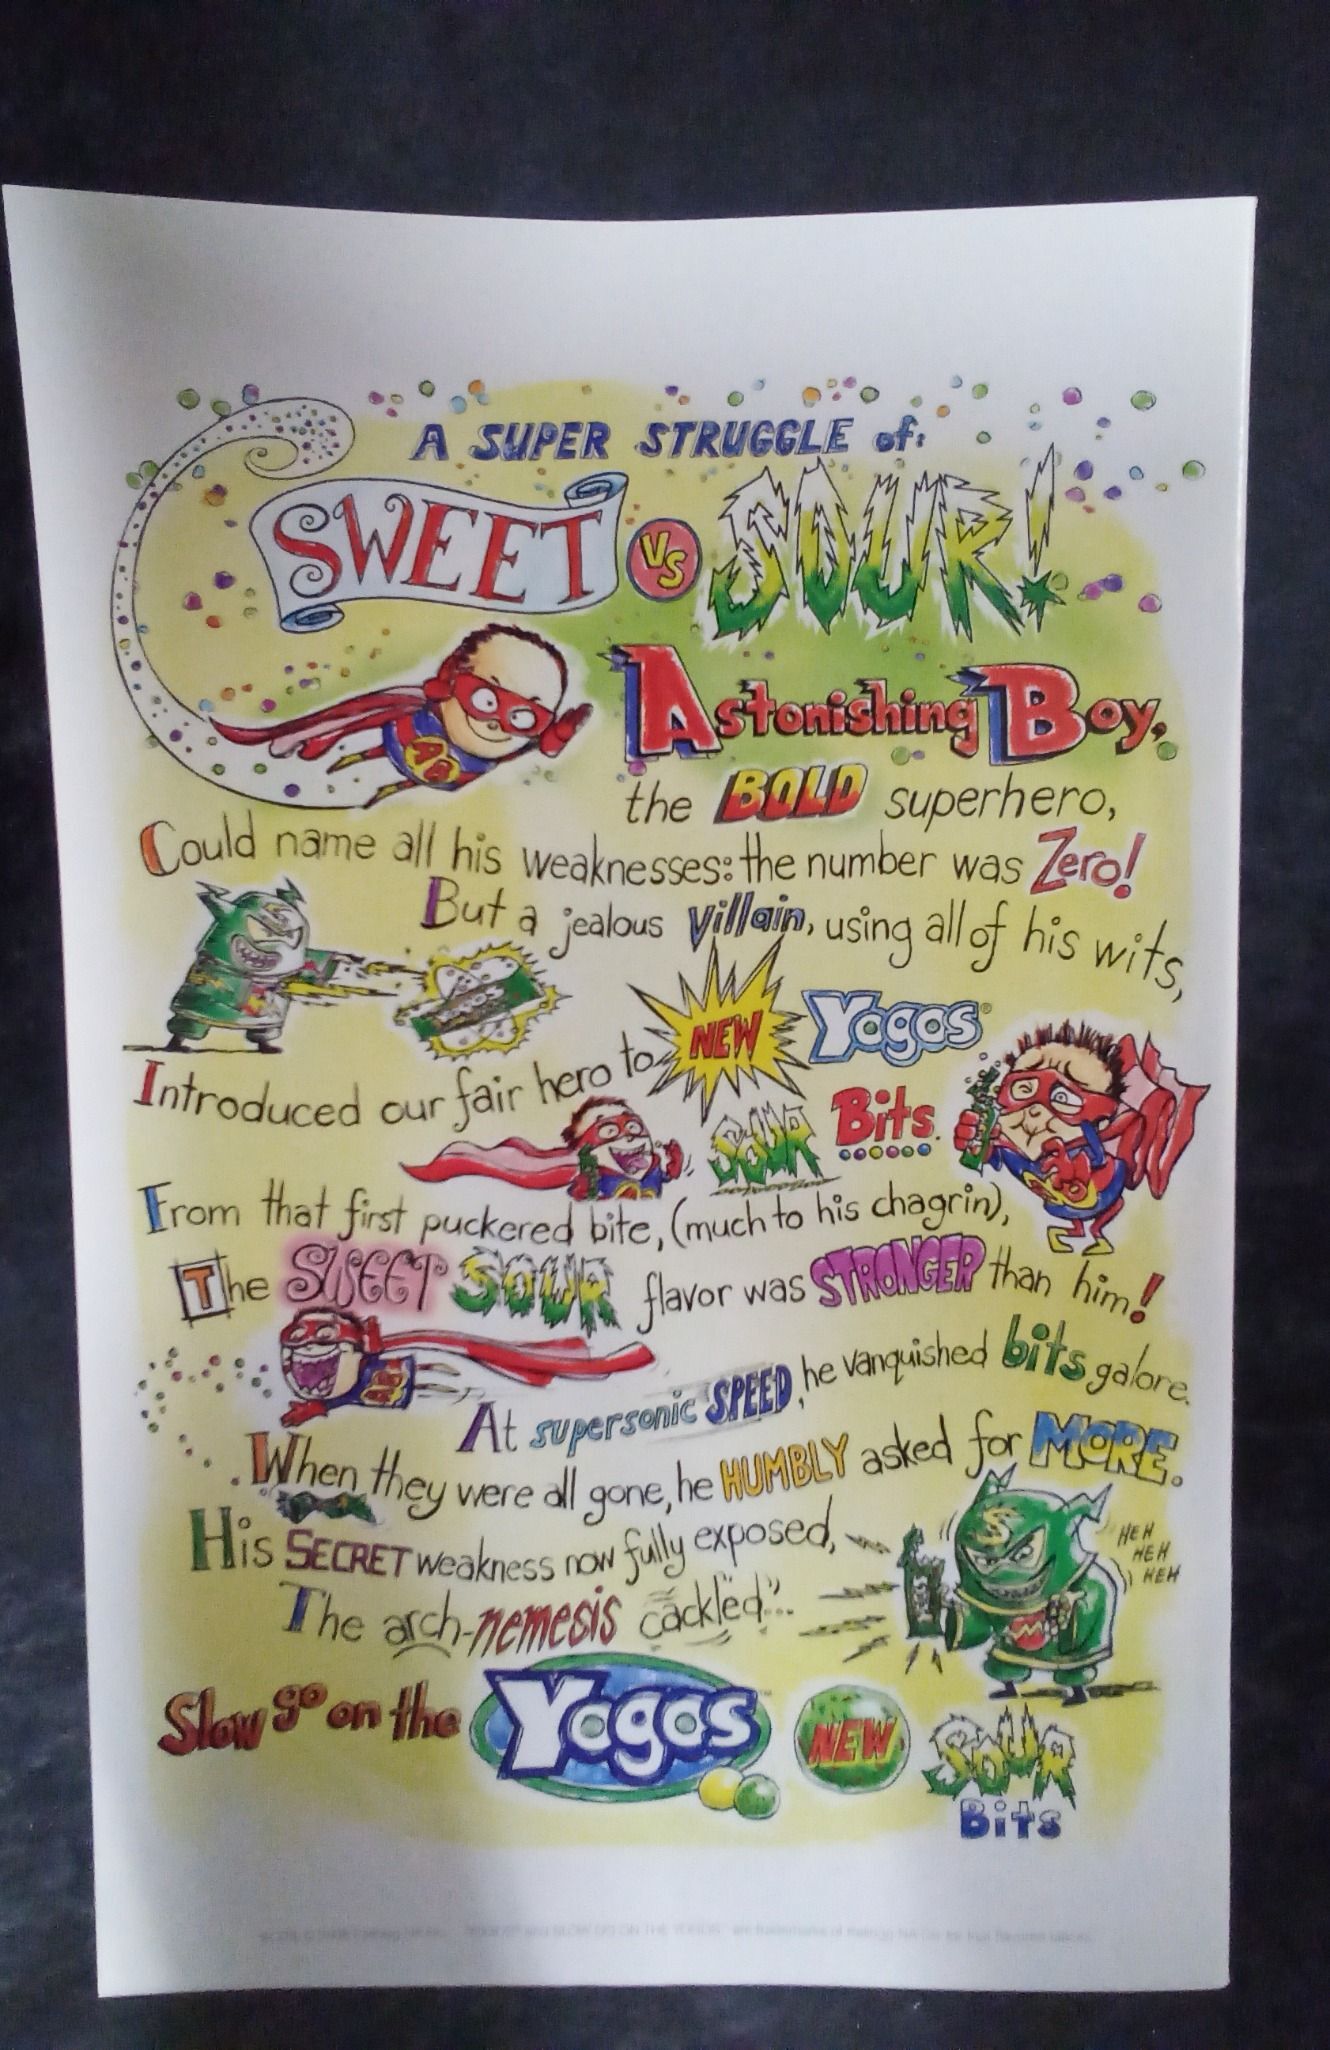 A SUPER STRUGGLE of:
SWEET VS SOUR!
Astonishing Boy,
the BOLD superhero,
Could name all his weaknesses: the number was Zero!
But a jealous Villain, using all of his wits,
Introduced our fair hero to NEW Yogos®
SOUR Bits.
From that first puckered bite, (much to his chagrin),
The SWEET SOUR flavor was STRONGER than him!
At supersonic SPEED, he vanquished bits galore.
When they were all gone, he HUMBLY asked for MORE.
His SECRET weakness now fully exposed,
The arch-nemesis cackled"...
HEH
HEH
HEH
Slow go on the Yogos™ NEW SOUR
Bits
AB
S